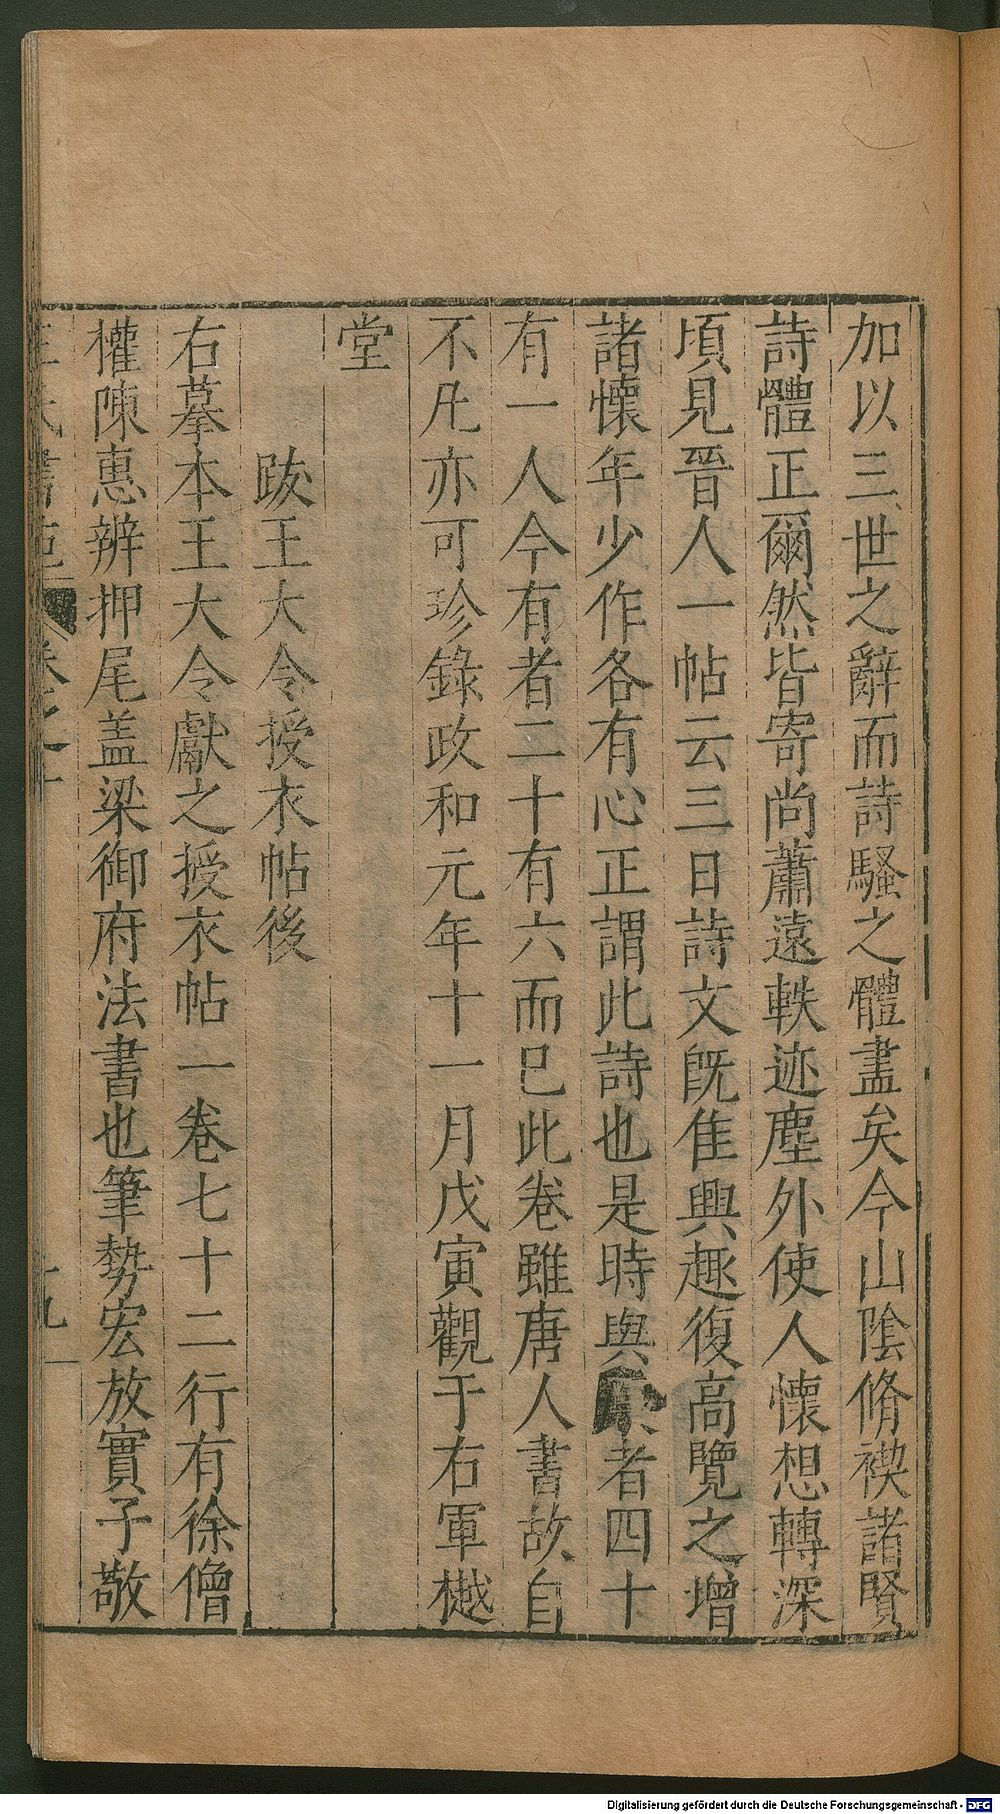 加以三世之辭而詩騷之體盡矣今山陰脩禊諸賢
詩體正爾然皆寄尚蕭遠軼迹塵外使人懷想轉深
頃見晉人一帖云三日詩文旣隹興趣復高覽之增
諸懷年少作各有心正謂此詩也是時與者四十
有一人今有者二十有六而巳此卷雖唐人書故自
不凡亦可珍錄政和元年十一月戊寅觀于右軍樾
堂
跋王大令授衣帖後
右摹本王大令獻之授衣帖一卷七十二行有徐僧
權陳惠辨押尾盖梁御府法書也筆勢宏放實子敬
王氏書苑
卷之十
十九
Digitalisierung gefördert durch die Deutsche Forschungsgemeinschaft - DFG